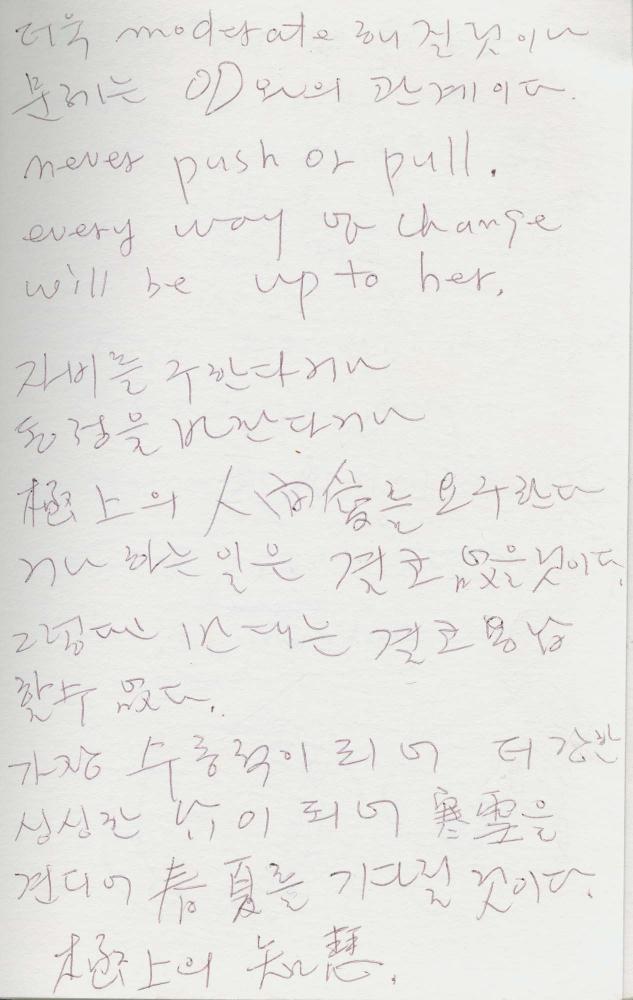 더욱 moderate 해질 것이나
문제는 OD와의 관계이다.
never push or pull.
every way of change
will be up to her.
자비를 구한다거나
동정을 바란다거나
極上의 人間愛를 요구한다
거나 하는 일은 결코 없을 것이다.
그렇다면 반대는 결코 용납
할 수 없다.
가장 수동적이 되어 더
싱싱한 이 되어 寒雪을
견디어 春夏를 기다릴 것이다.
極上의 知慧.